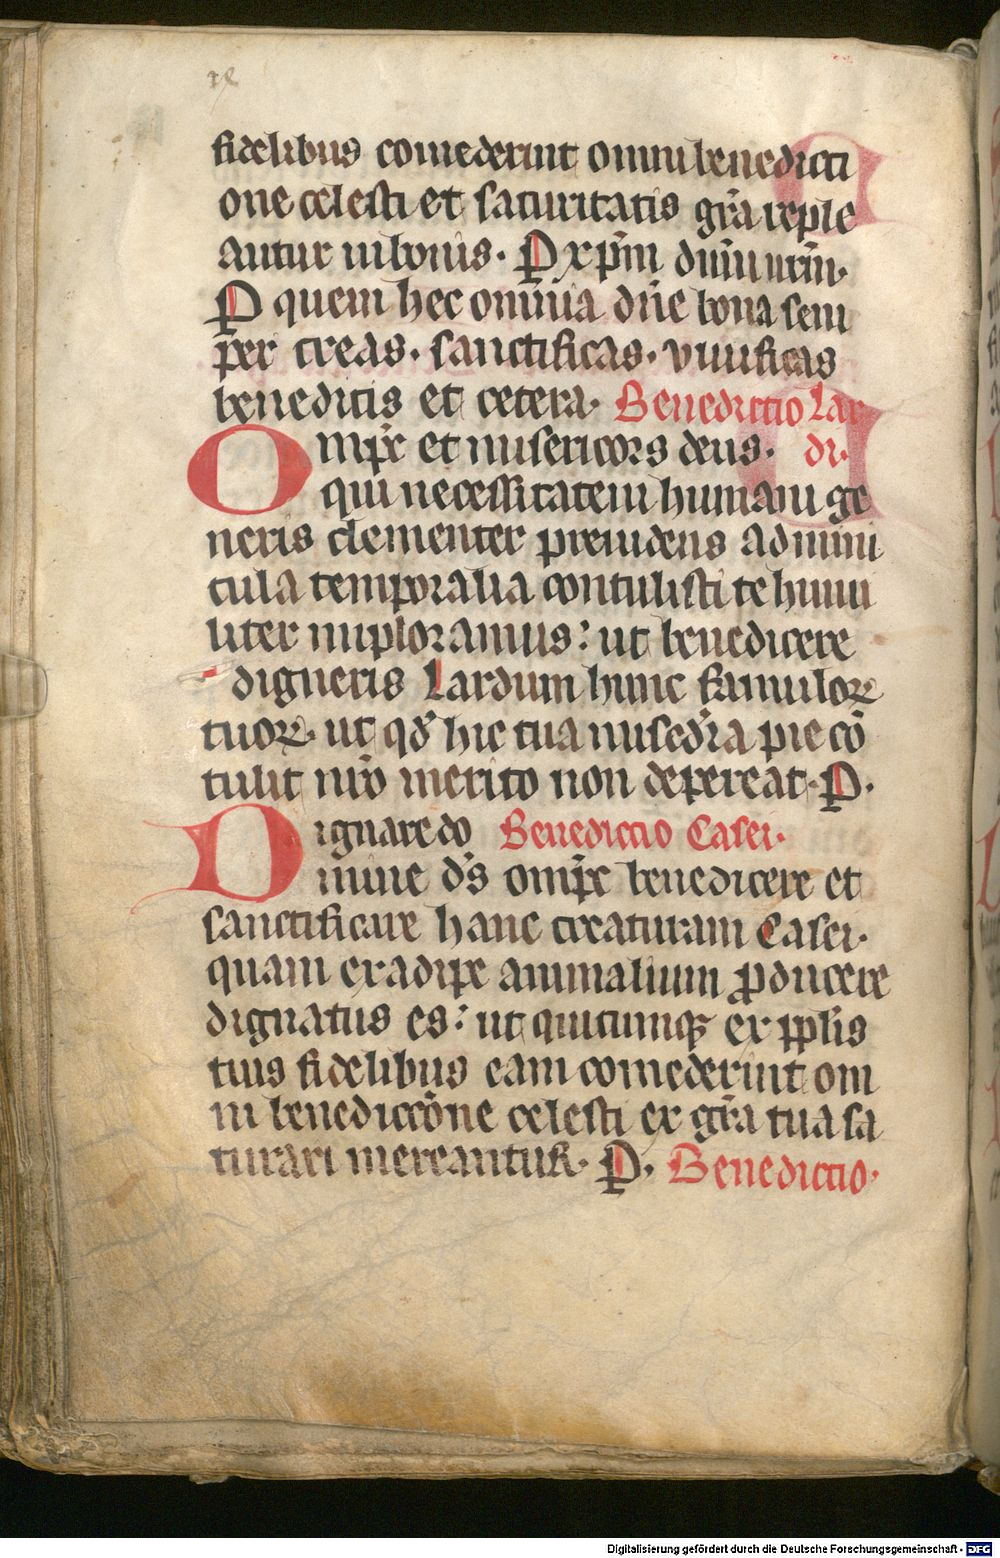 fidelibus comederint omni benedicti
one celesti et saturitatis gr̄a reple
antur in bonis. P xp̄m dn̄m nr̄m.
P quem hec omnia dn̄e bona sem
per creas. sanctificas. viuificas
benedicis et cetera. Benedictio Lar
Omp̄c et misericors deus. di.
qui necessitatem humani ge
neris clementer preuidens admini
cula temporalia contulisti te humi
liter imploramus: ut benedicere
digneris Lardum hunc famuloꝝ
tuoꝝ. ut qd̄ hic tua mis̄dia pie cō
tulit nr̄o merito non depereat. P.
Dignare do Benedictio Casei.
mine ds̄ omp̄c benedicere et
sanctificare hanc creaturam Casei.
quam ex adipe animalium ꝓducere
dignatus es: ut quicumqꝫ ex pp̄lis
tuis fidelibus eam comederint om
ni benediccōne celesti ex gr̄a tua sa
turari mereantur. P. Benedictio.
Digitalisierung gefördert durch die Deutsche Forschungsgemeinschaft - DFG